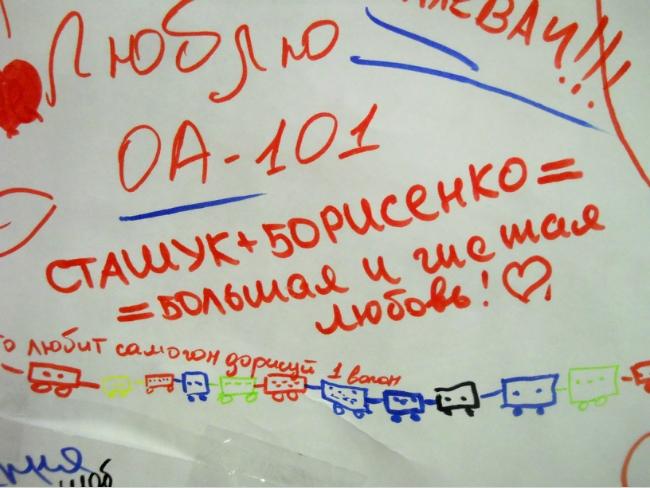 Люблю
ОА-101
СТАШУК+БОРИСЕНКО=
=БОЛЬШАЯ и чистая
любовь!
любит самогон дорисуй 1 вагон